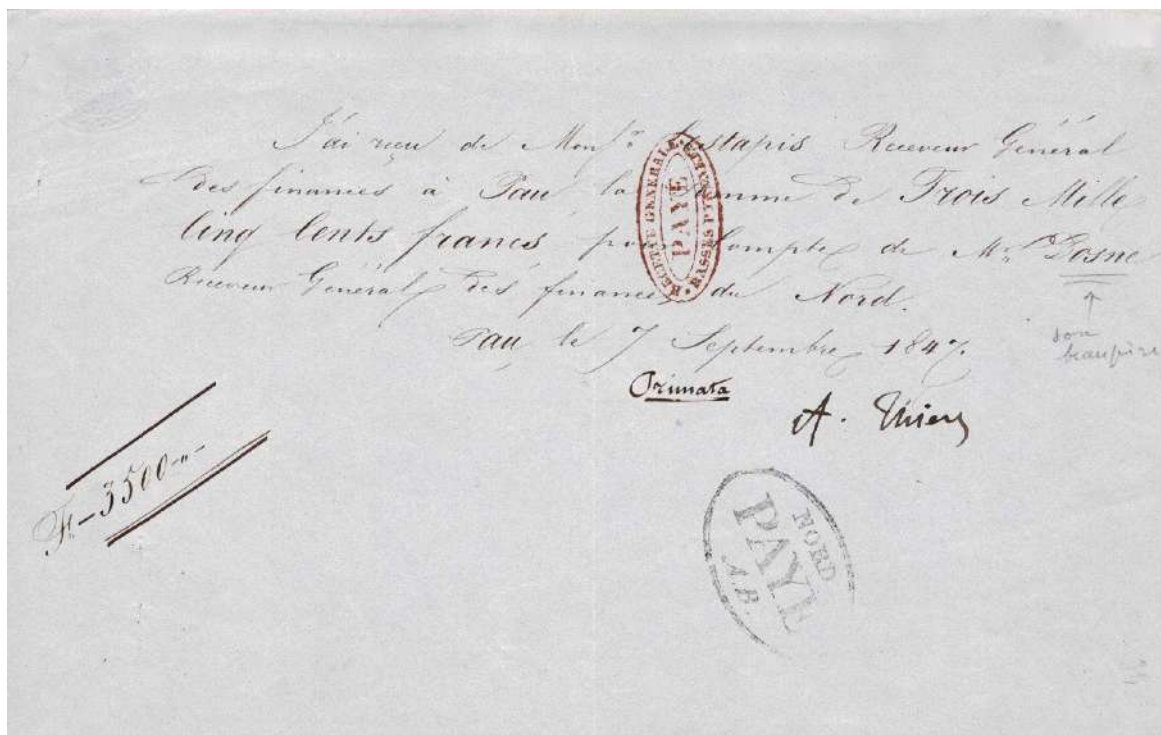 J'ai reçu de Monsr. Lestapis Receveur Général
des finances à Pau la somme de Trois Mille
Cinq Cents francs pour Compte de Mr. Dosne
Receveur Général des finances du Nord.
Pau le 7 Septembre 1847.
son
beaupère
Primata
A. Thiers
Fr - 3500 -"-
RECETTE GENERALE
BASSES PYRENEES
PAYE
NORD
PAYE
A.B.